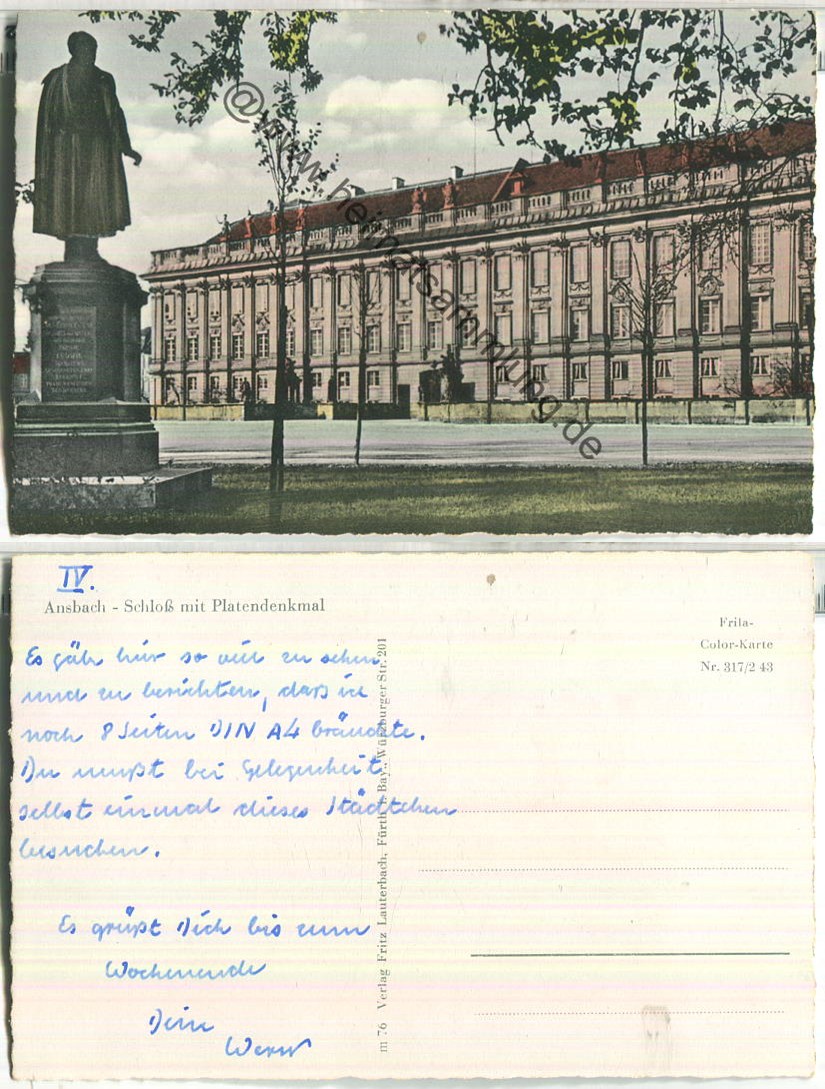 @www.heimatsammlung.de
IV.
Ansbach - Schloß mit Platendenkmal
Es gäbe hier so viel zu sehen
und zu berichten, daß ich
noch 8 Seiten DIN A4 bräuchte.
Du mußt bei Gelegenheit
selbst einmal dieses Städtchen
besuchen.
Es grüßt Dich bis zum
Wochenende
Dein
m 76 Verlag Fritz Lauterbach, Fürth i. Bay., Würzburger Str. 201
Frila-
Color-Karte
Nr. 317/2 43